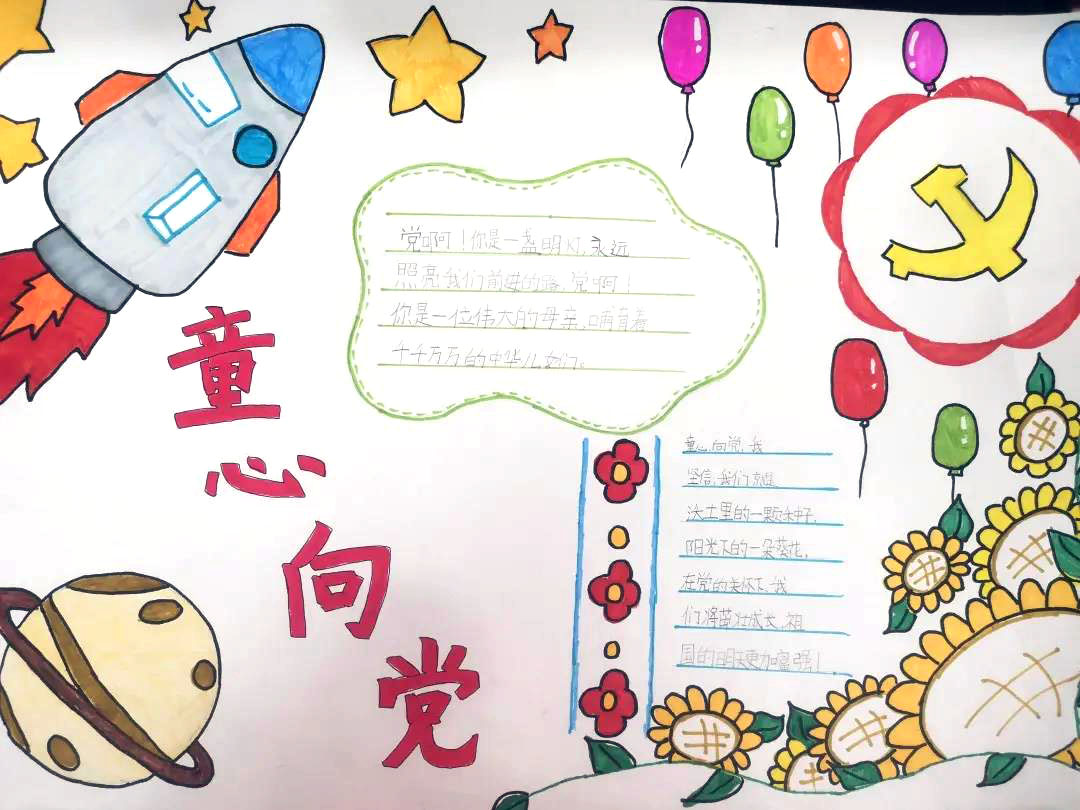 童
心
向
党
党啊!你是一盏明灯,永远
照亮我们前进的路,党啊!
你是一位伟大的母亲,哺育着
千千万万的中华儿女们。
童心向党,我
坚信,我们就是
沃土里的一颗种子,
阳光下的一朵葵花,
在党的关怀下,我
们将茁壮成长,祖
国的明天更加富强!